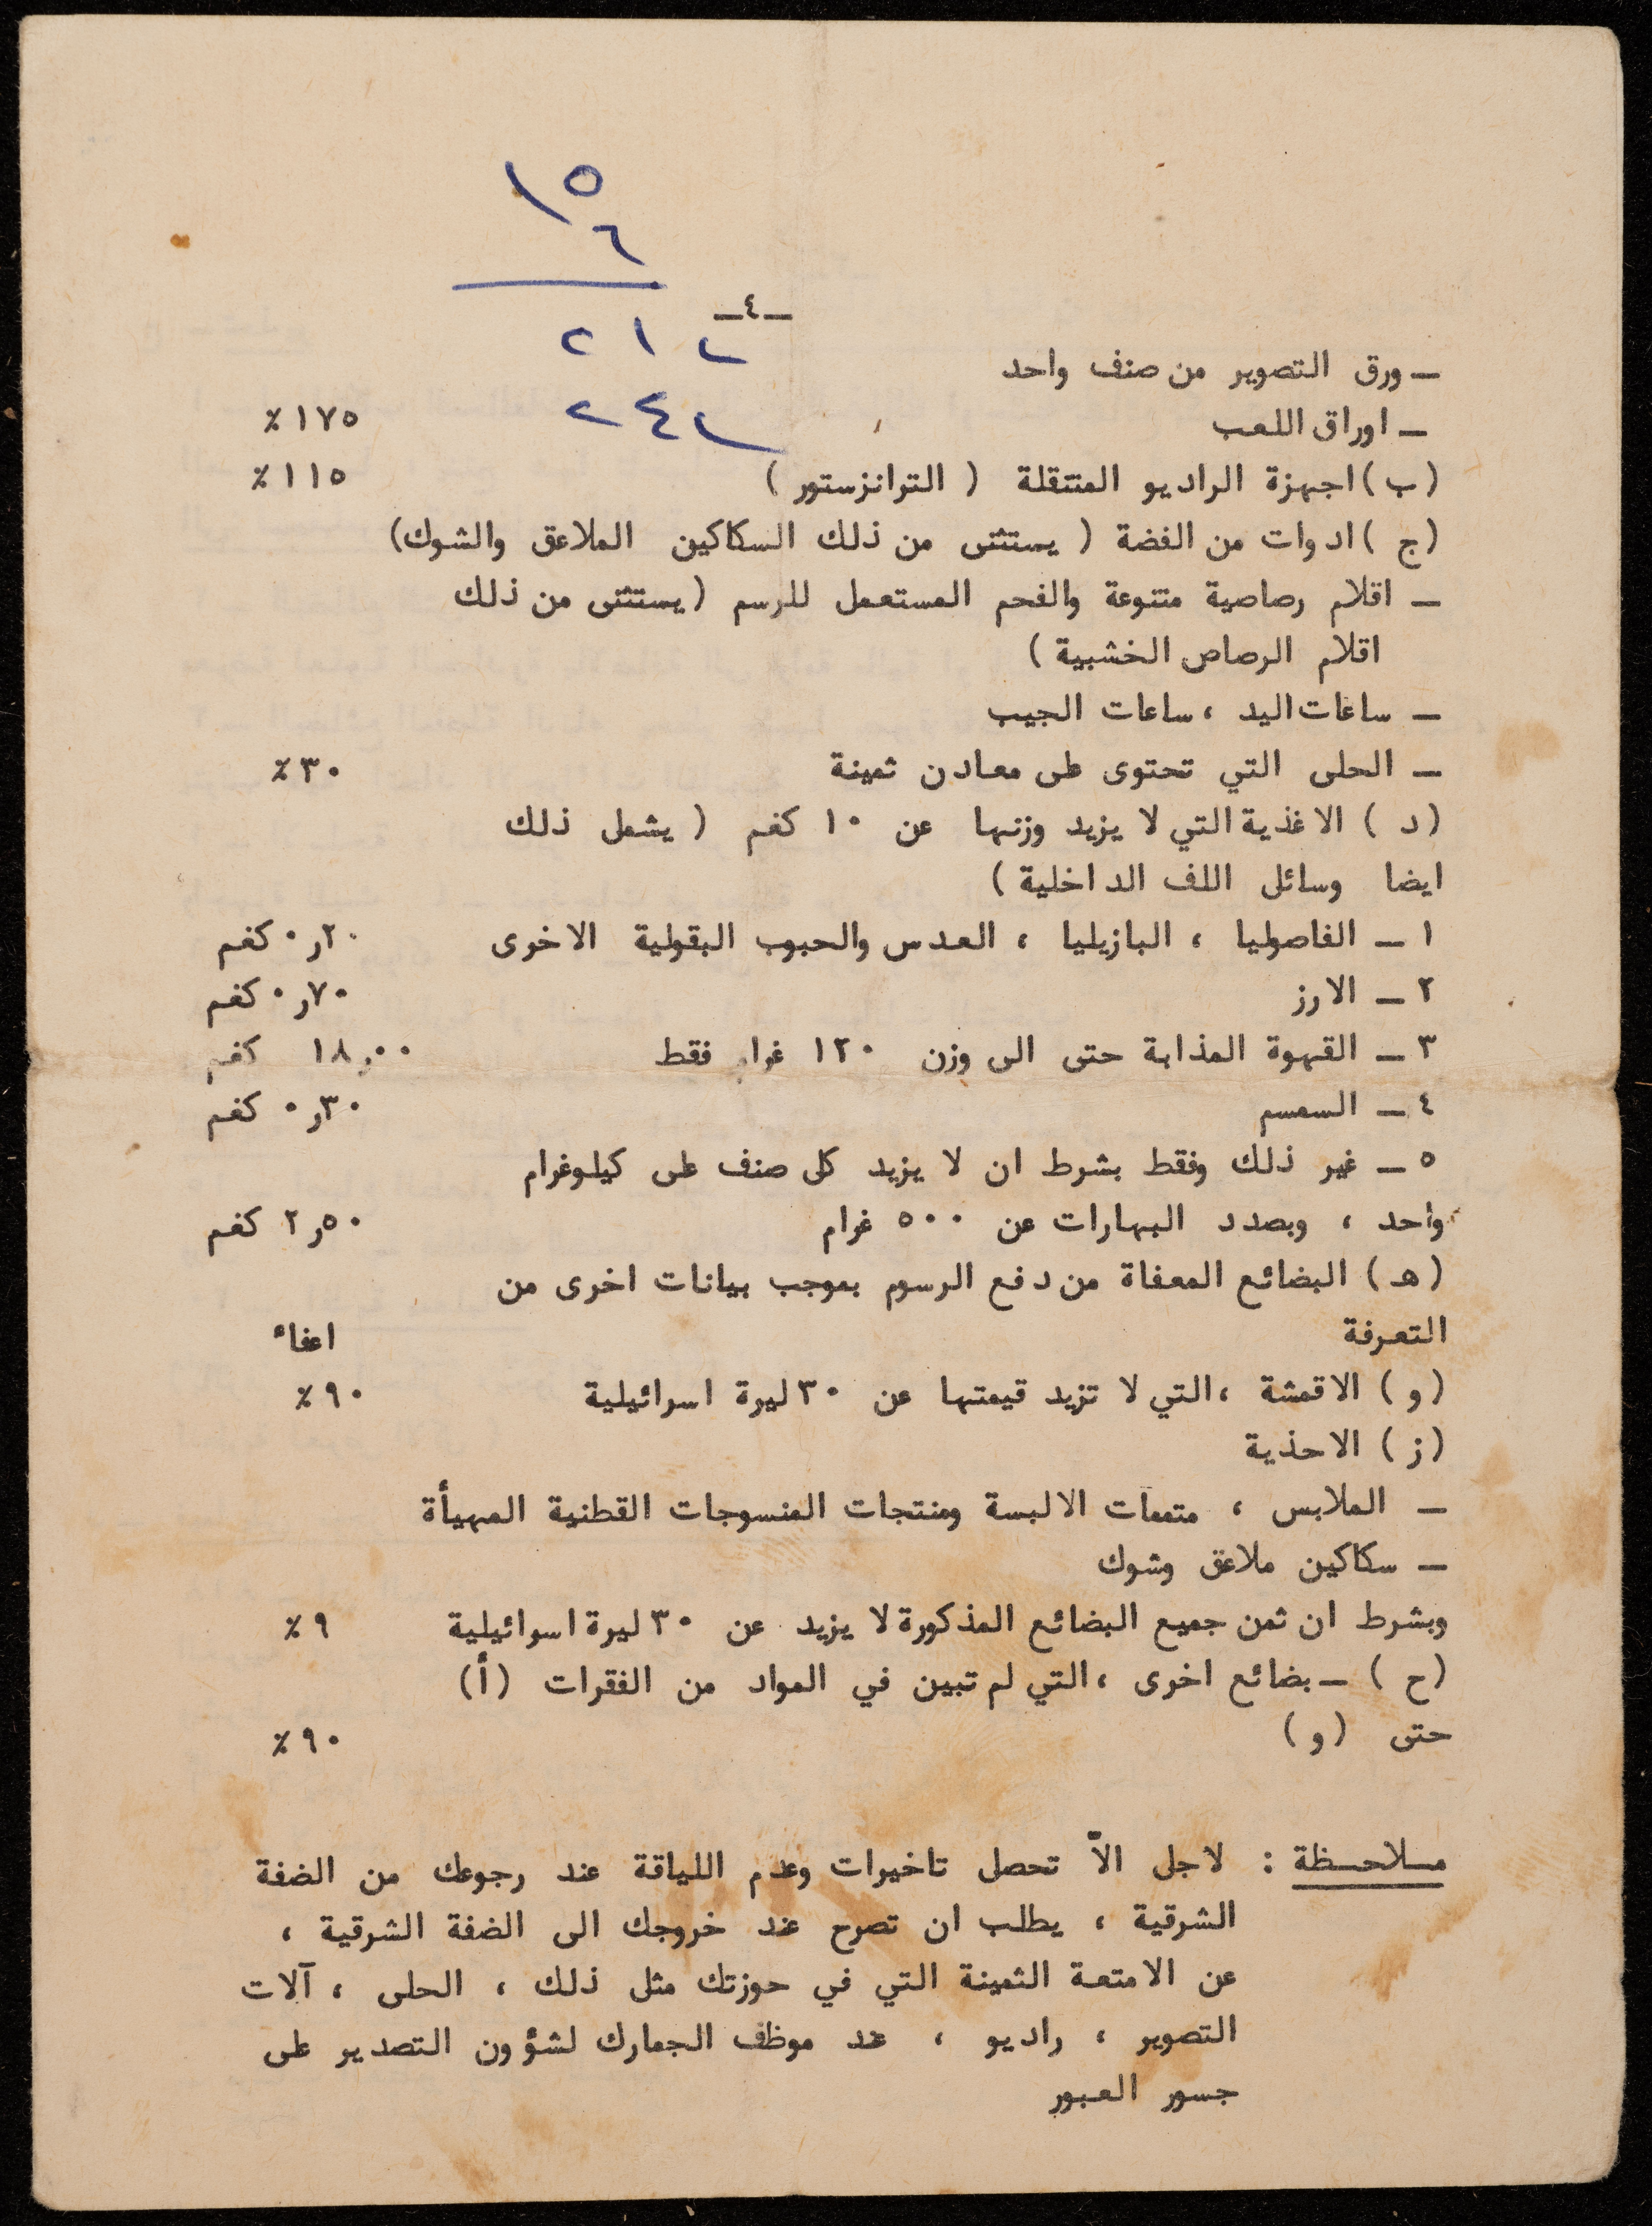 ١٥
٦
٢١٢
٢٤٢
ـ٤ـ
ـ ورق التصوير من صنف واحد
ـ اوراق اللعب ١٧٥ ٪
(ب) اجهزة الراديو المتنقلة ( الترانزستور ) ١١٥ ٪
(ج ) ادوات من الفضة ( يستثنى من ذلك السكاكين الملاعق والشوك)
ـ اقلام رصاصية متنوعة والفحم المستعمل للرسم (يستثنى من ذلك
اقلام الرصاص الخشبية )
ـ ساعات اليد ، ساعات الجيب
ـ الحلى التي تحتوى على معادن ثمينة ٣٠ ٪
(د ) الاغذية التي لا يزيد وزنها عن ١٠ كغم ( يشمل ذلك
ايضا وسائل اللف الداخلية )
١ ـ الفاصوليا ، البازيليا ، العدس والحبوب البقولية الاخرى ٢٠ر٠ كغم
٢ ـ الارز ٧٠ر٠ كغم
٣ ـ القهوة المذابة حتى الى وزن ١٢٠ غرام فقط ١٨ر٠٠ كغم
٤ ـ السمسم ٣٠ر٠ كغم
٥ ـ غير ذلك وفقط بشرط ان لا يزيد كل صنف على كيلوغرام
واحد ، وبصدد البهارات عن ٥٠٠ غرام ٥٠ر٢ كغم
(هـ ) البضائع المعفاة من دفع الرسوم بموجب بيانات اخرى من
التعرفة اعفاء
(و ) الاقمشة ، التي لا تزيد قيمتها عن ٣٠ ليرة اسرائيلية ٩٠ ٪
(ز ) الاحذية
ـ الملابس ، متممات الالبسة ومنتجات المنسوجات القطنية المهيأة
ـ سكاكين ملاعق وشوك
وبشرط ان ثمن جميع البضائع المذكورة لا يزيد عن ٣٠ ليرة اسرائيلية ٩ ٪
(ح ) ـ بضائع اخرى ، التي لم تبين في المواد من الفقرات (أ)
حتى (و ) ٩٠ ٪
مـلاحـظة : لاجل الاّ تحصل تاخيرات وعدم اللياقة عند رجوعك من الضفة
الشرقية ، يطلب ان تصرح عند خروجك الى الضفة الشرقية ،
عن الامتعة الثمينة التي في حوزتك مثل ذلك ، الحلى ، آلات
التصوير ، راديو ، عند موظف الجمارك لشؤون التصدير على
جسور العبور